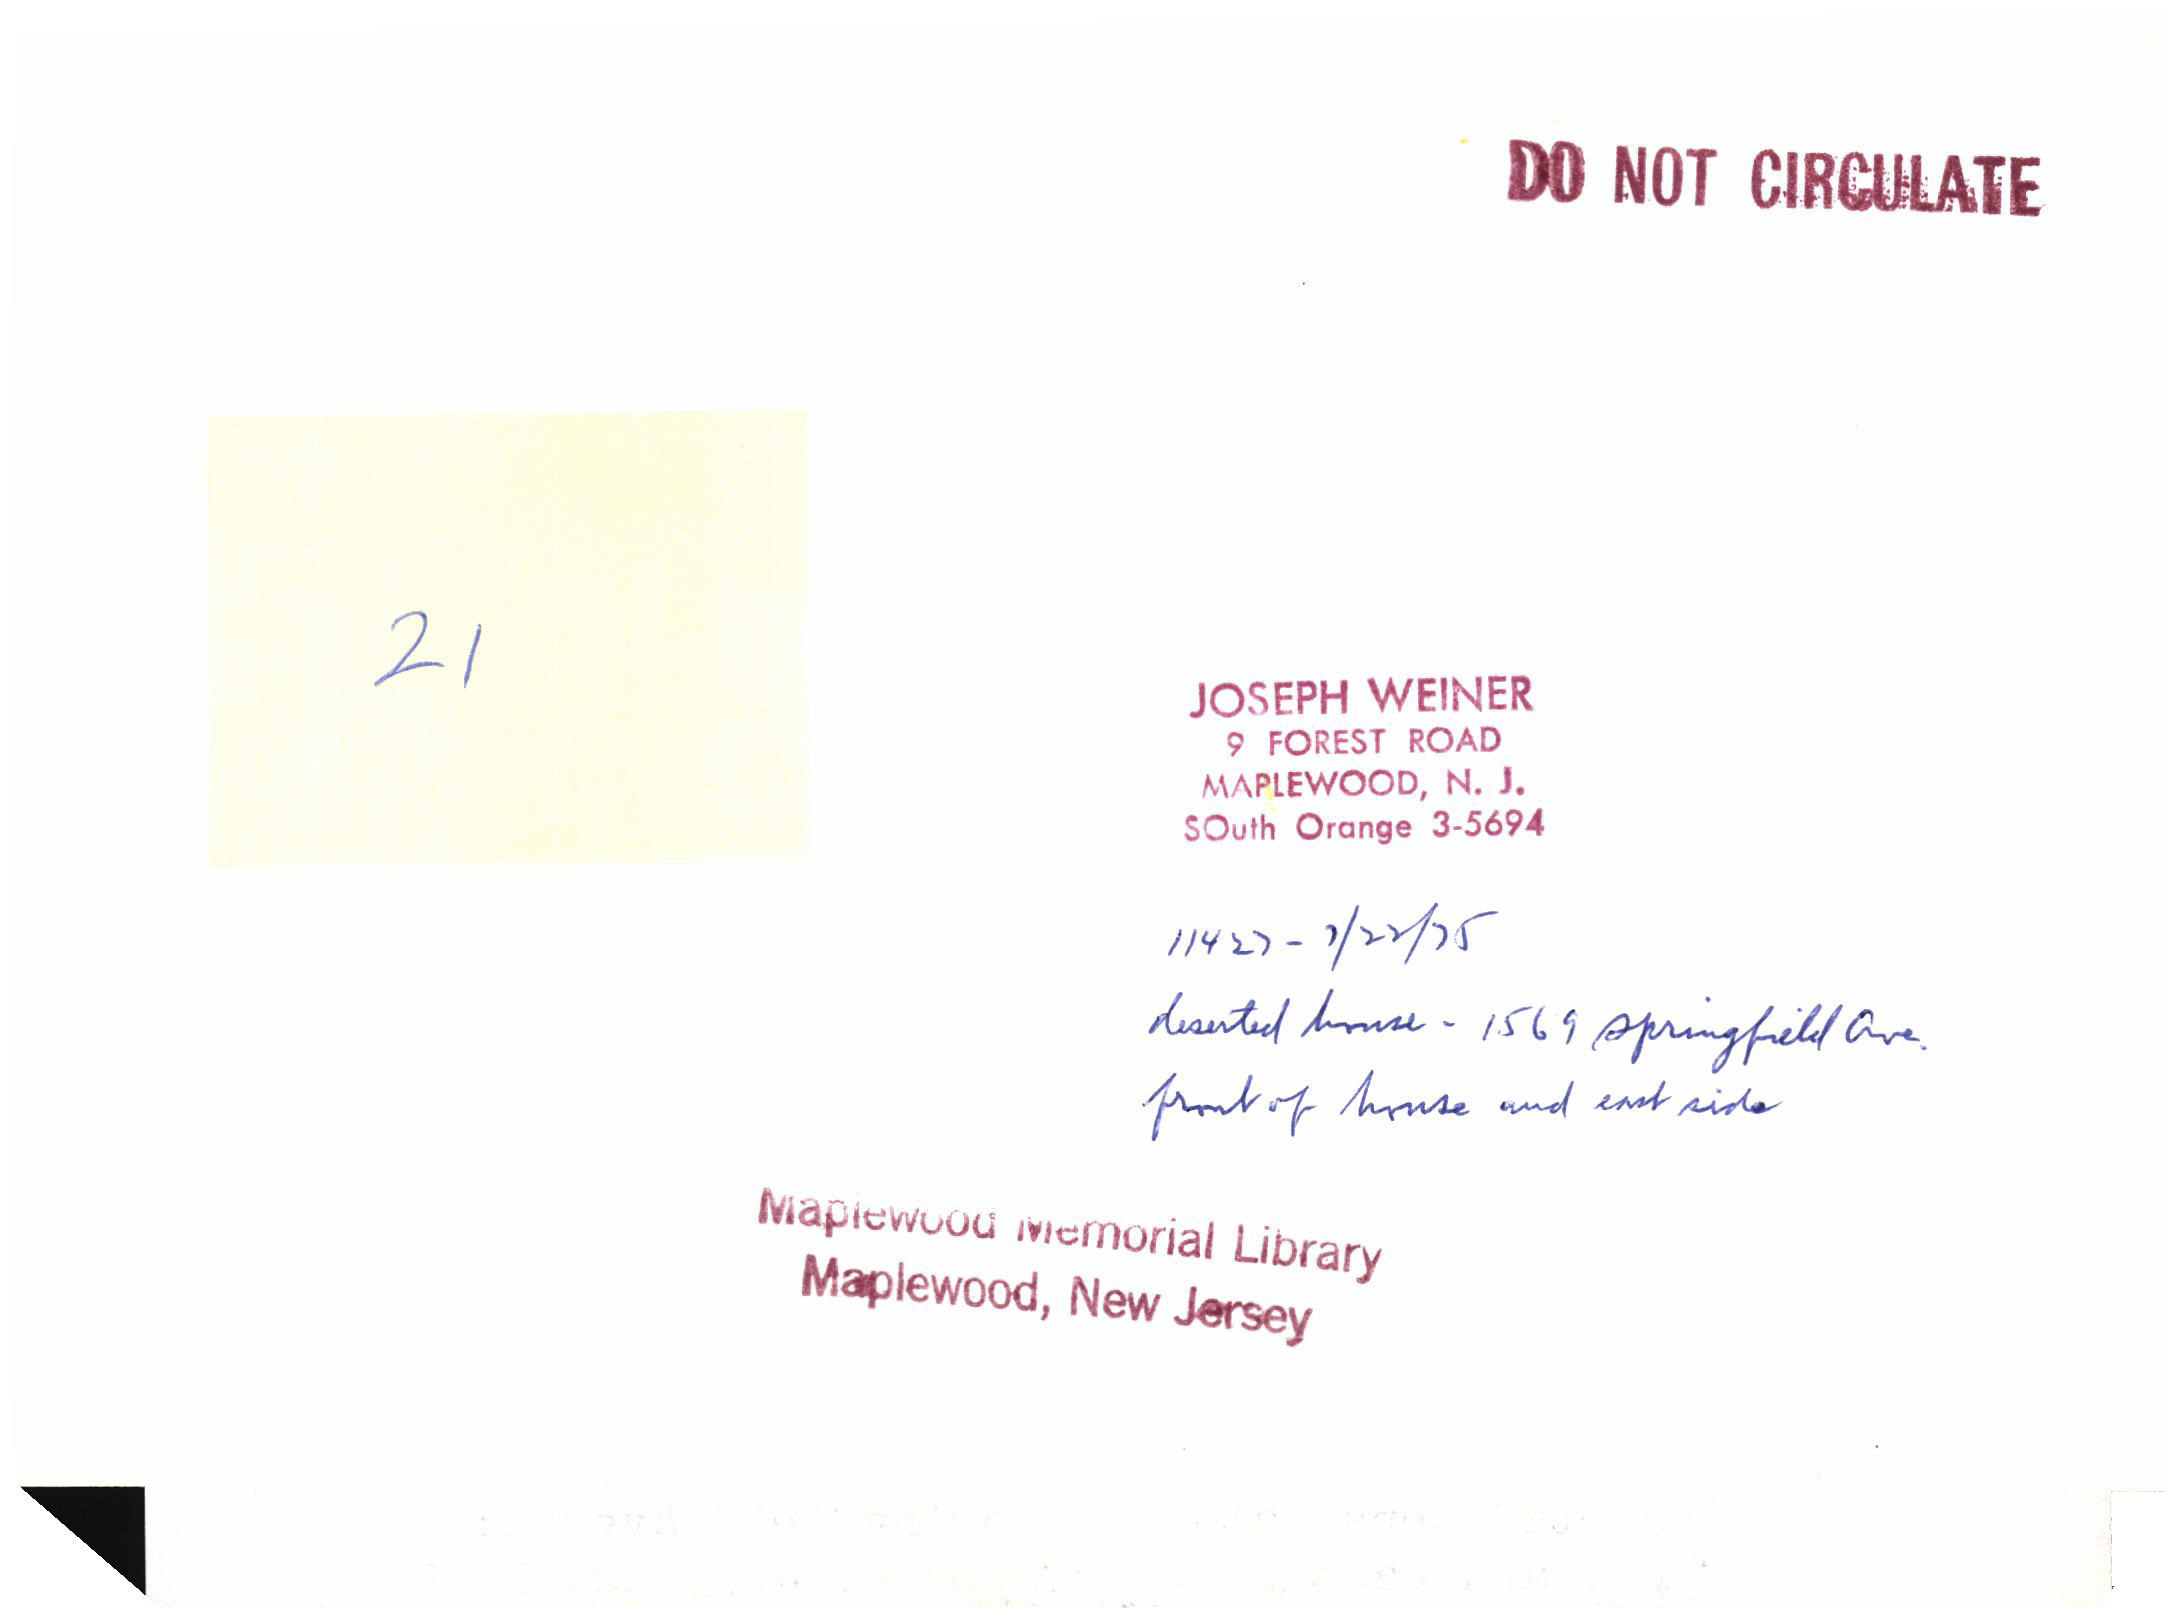 DO NOT CIRCULATE
21
JOSEPH WEINER
9 FOREST ROAD
MAPLEWOOD, N. J.
SOuth Orange 3-5694
11427 - 7/22/75
deserted house - 1569 Springfield Ave.
front of house and east side
Maplewood Memorial Library
Maplewood, New Jersey